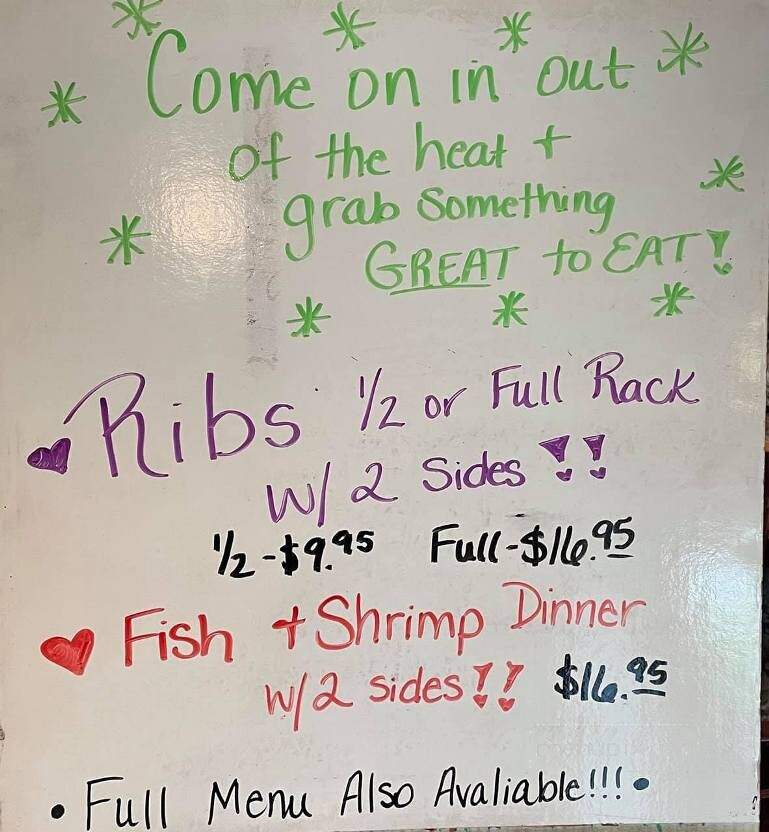 Come on in out
of the heat +
grab something
GREAT to EAT!
Ribs 1/2 or Full Rack
w/ 2 Sides !!
1/2 - $9.95 Full - $16.95
Fish + Shrimp Dinner
w/ 2 sides!! $16.95
• Full Menu Also Avaliable!!! •